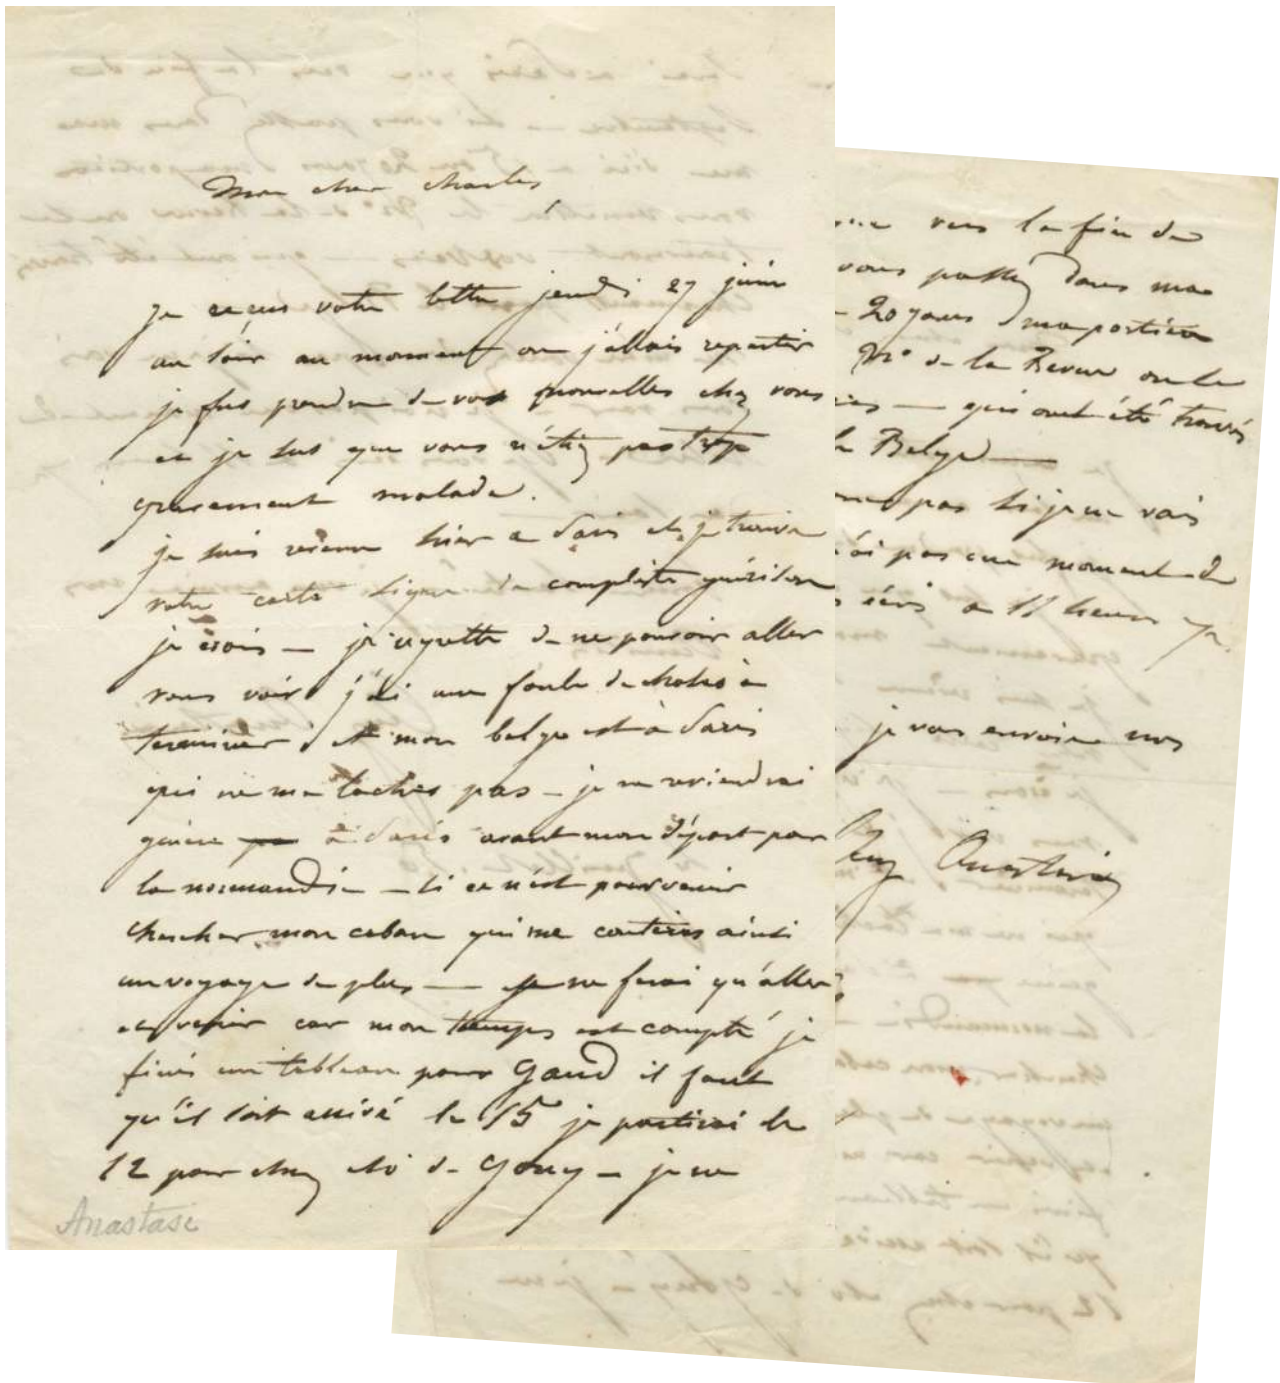 Mon cher Charles
je reçus votre lettre jeudi 27 juin
au soir au moment ou j'allais repartir
je fus prendre de vos nouvelles chez vous
et je sus que vous n'étiez pas trop
gravement malade.
je suis revenu hier a Paris et je trouve
votre carte signe de complète guérison
je crois — je regrette de ne pouvoir aller
vous voir j'ai une foule de choses à
terminer et mon belge est à Paris
qui ne me lache pas — je ne reviendrai
guère à Paris avant mon départ pour
la normandie — si ce n'est pour venir
chercher mon caban qui me coutera ainsi
un voyage de plus — je ne ferai qu'aller
et venir car mon temps est compté je
finis un tableau pour Gand il faut
qu'il soit arrivé le 15 je partirai le
12 pour chez de Gouy — je ne
Anastase
que vers la fin de
vous passez dans ma
20 jours ma portière
Mo de la Revue ou le
qui ont été trouvés
Belge —
pas si je ne vais
pas un moment de
écris a 11 heures
je vous envoie mes
Aug Anastasi